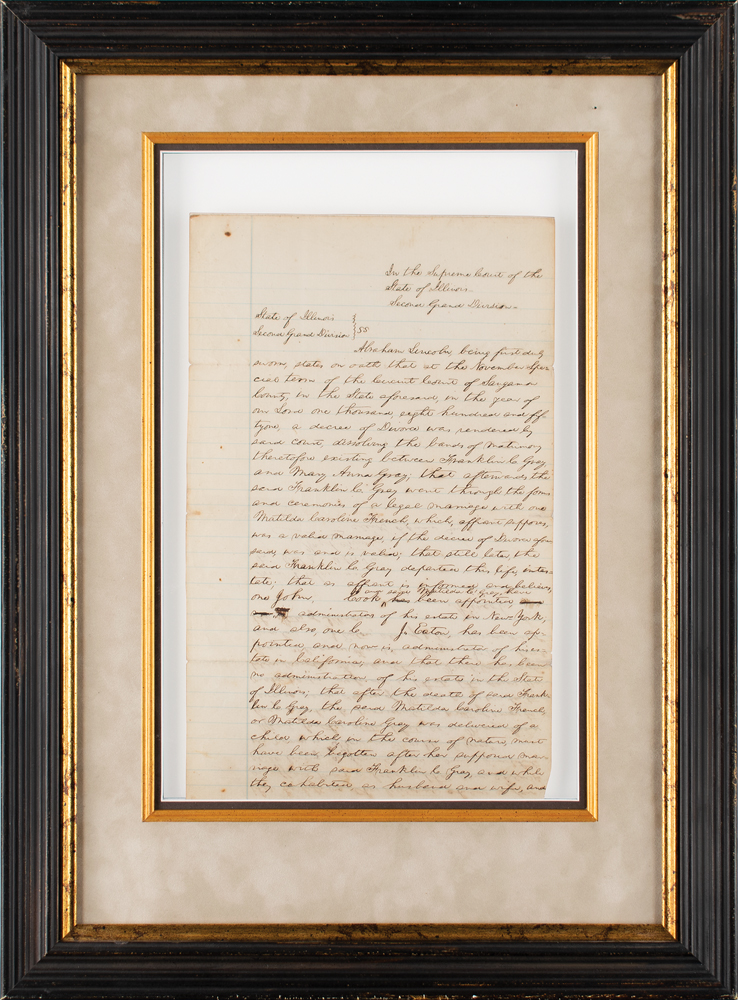 In the Supreme Court of the
State of Illinois—
Second Grand Division—
State of Illinois
Second Grand Division } SS
Abraham Lincoln being first duly
sworn, states on oath that at the November Spe-
cial term of the Circuit Court of Sangamon
County, in the State aforesaid, in the year of
our Lord one thousand, eight hundred and fif
tyone, a decree of Divorce was rendered by
said court, dissolving the bands of matrimony
theretofore existing between Franklin C. Gray
and Mary Anna Gray; that afterwards the
said Franklin C. Gray went through the forms
and ceremonies of a legal marriage with one
Matilda Caroline French, which, affiant supposes,
was a valid marriage, if the decree of Divorce afore
said, was and is valid; that still later the
said Franklin C. Gray departed this life, intes-
tate; that as affiant is informed and believes,
and said Matilda C. Gray, have
one John. Cook, has been appointed
administrator of his estate in New-York,
and also, one C. J. Eaton, has been ap-
pointed and now is, administrator of his es-
tate in California, and that there has been
no administration of his estate in the State
of Illinois; that after the death of said Frank-
lin C. Gray, the said Matilda Caroline French,
or Matilda Caroline Gray was delivered of a
child which in the course of nature, must
have been begotten after her supposed mar-
riage with said Franklin C. Gray, and while
they cohabited as husband and wife, and